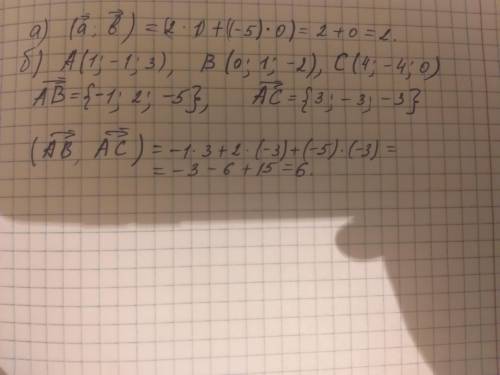 а) (a⃗, b⃗) = (2 · 1) + ((-5) · 0) = 2 + 0 = 2.
б) A(1; -1; 3), B(0; 1; -2), C(4; -4; 0)
AB⃗ = {-1; 2; -5}, AC⃗ = {3; -3; -3}
(AB⃗, AC⃗) = -1 · 3 + 2 · (-3) + (-5) · (-3) =
= -3 - 6 + 15 = 6.